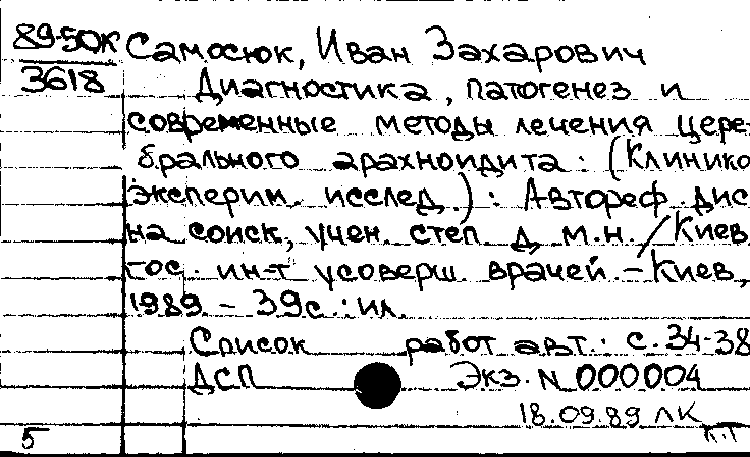 89-50К Самосюк, Иван Захарович
3618 Диагностика, патогенез и
современные методы лечения цере-
брального арахноидита : (Клинико
эксперим. исслед.) : Автореф. дис
на соиск. учен. степ. д. м.н. / Киев
гос. ин-т усоверш. врачей. - Киев,
1989. - 39с. : ил.
Список работ авт.: с. 34-38
ДСП Экз. N 000004
18.09.89 ЛК
5